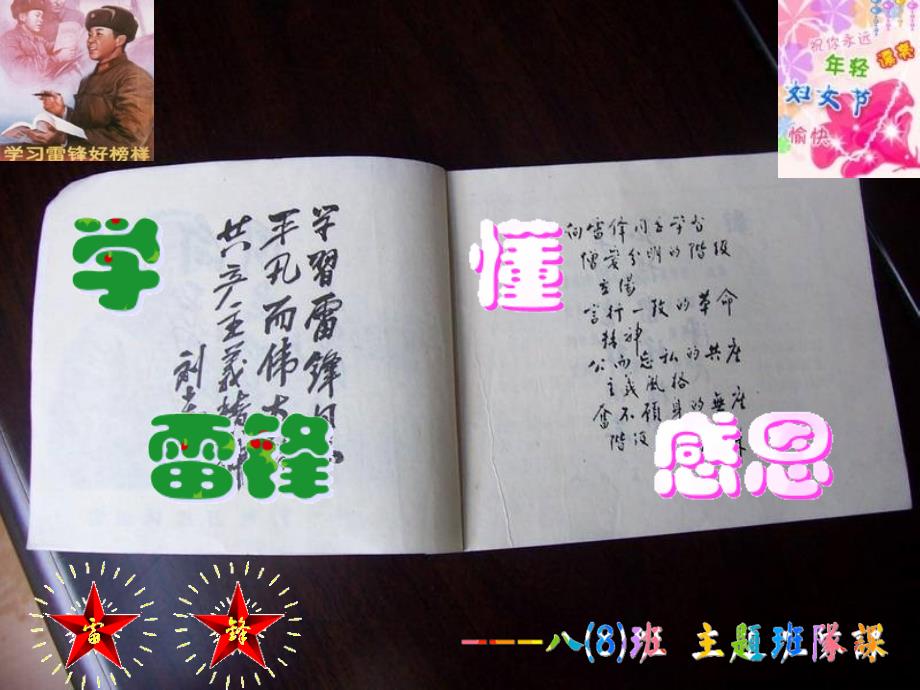 学习雷锋好榜样
祝你永远
年轻
漂亮
妇女节
愉快
学
雷锋
懂
感恩
学習雷鋒同
平凡而伟大
共产主義精神
刘少
向雷锋同志学习
憎爱分明的階級
立場
言行一致的革命
精神
公而忘私的共产
主義風格
奋不顧身的無产
階級
雷
锋
----八(8)班 主题班隊課